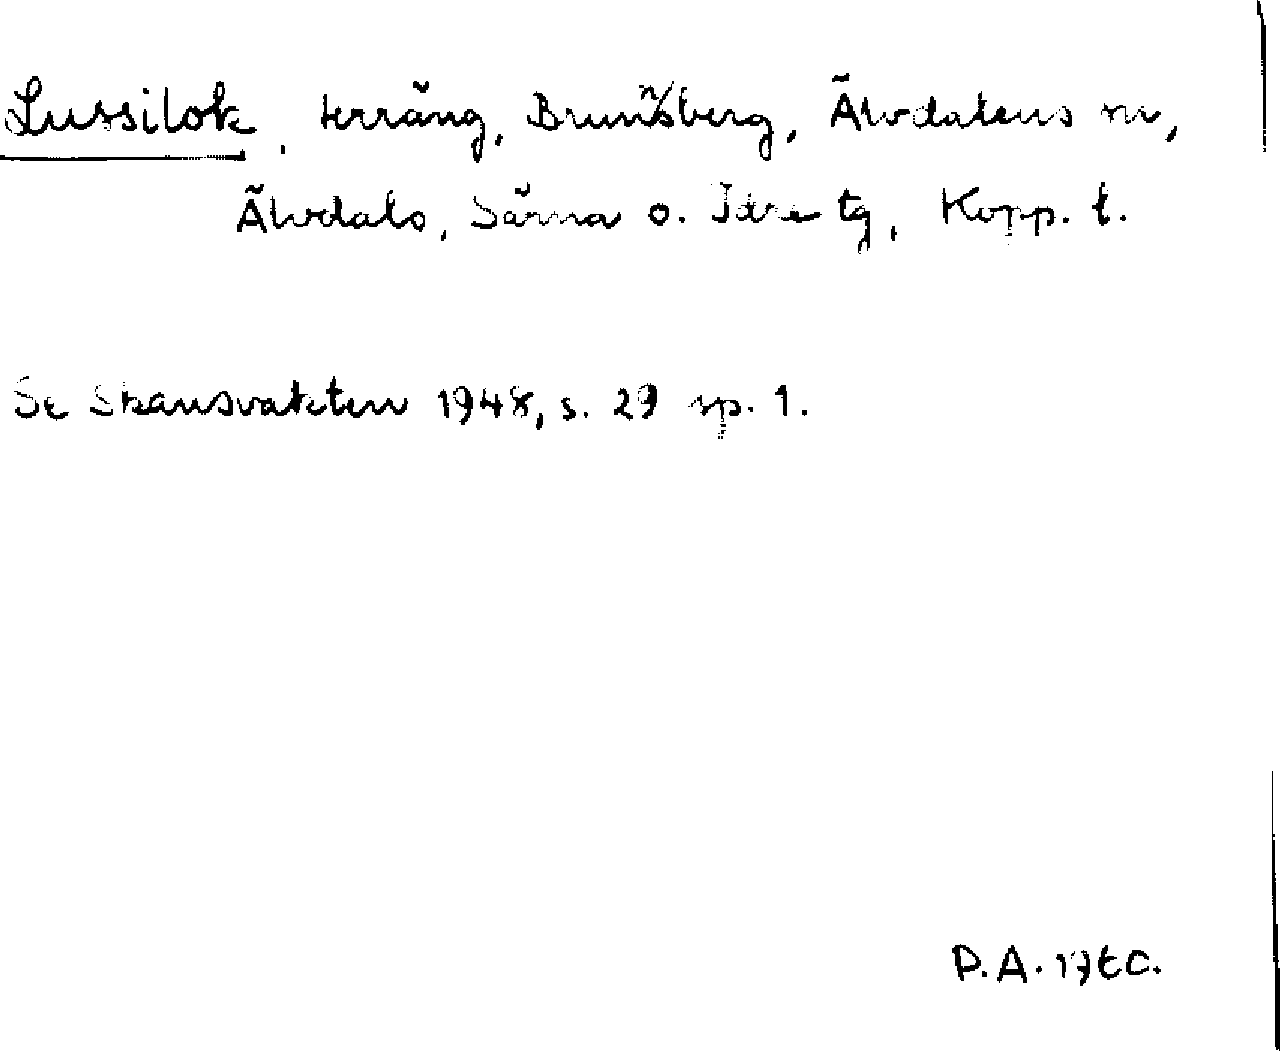 Lussilok, terräng, Brunnsberg, Älvdalens sn,
Älvdals, Särna o. Idre tg, Kopp. l.
Se Skansvakten 1948, s. 29 sp. 1.
P.A. 1960.